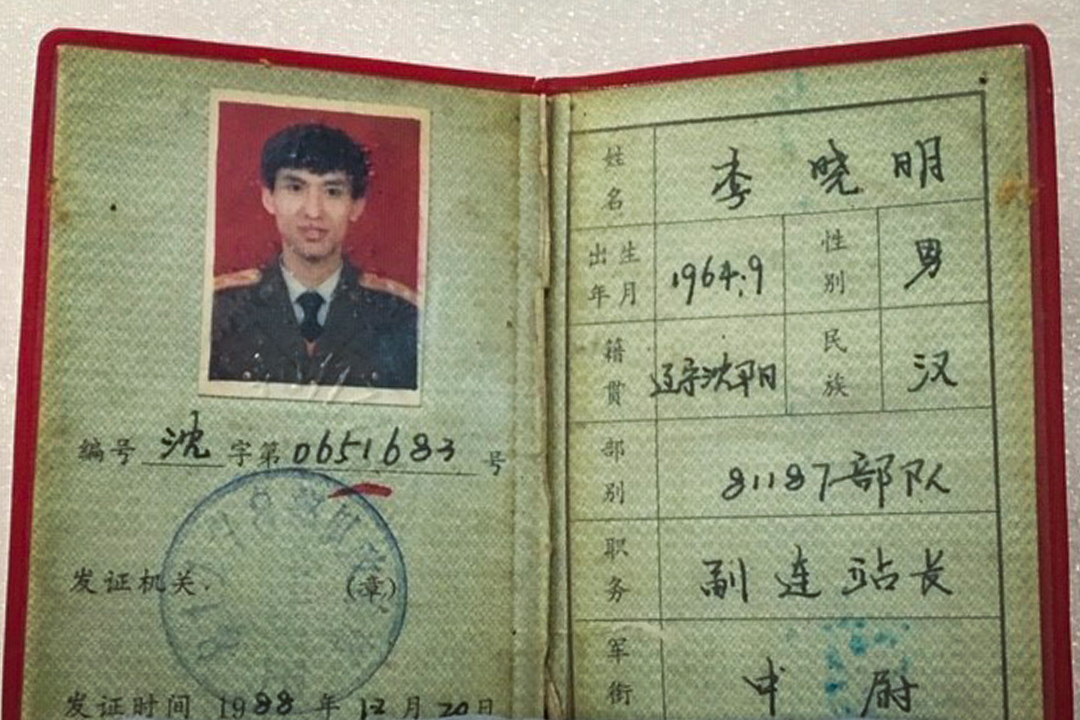 编号 沈 字第 0651683 号
发证机关.
(章)
发证时间 1988 年 12 月 20 日
姓名 李晓明
出生年月 1964.9 性别 男
籍贯 辽宁沈阳 民族 汉
部别 81187部队
职务 副连站长
军衔 中尉